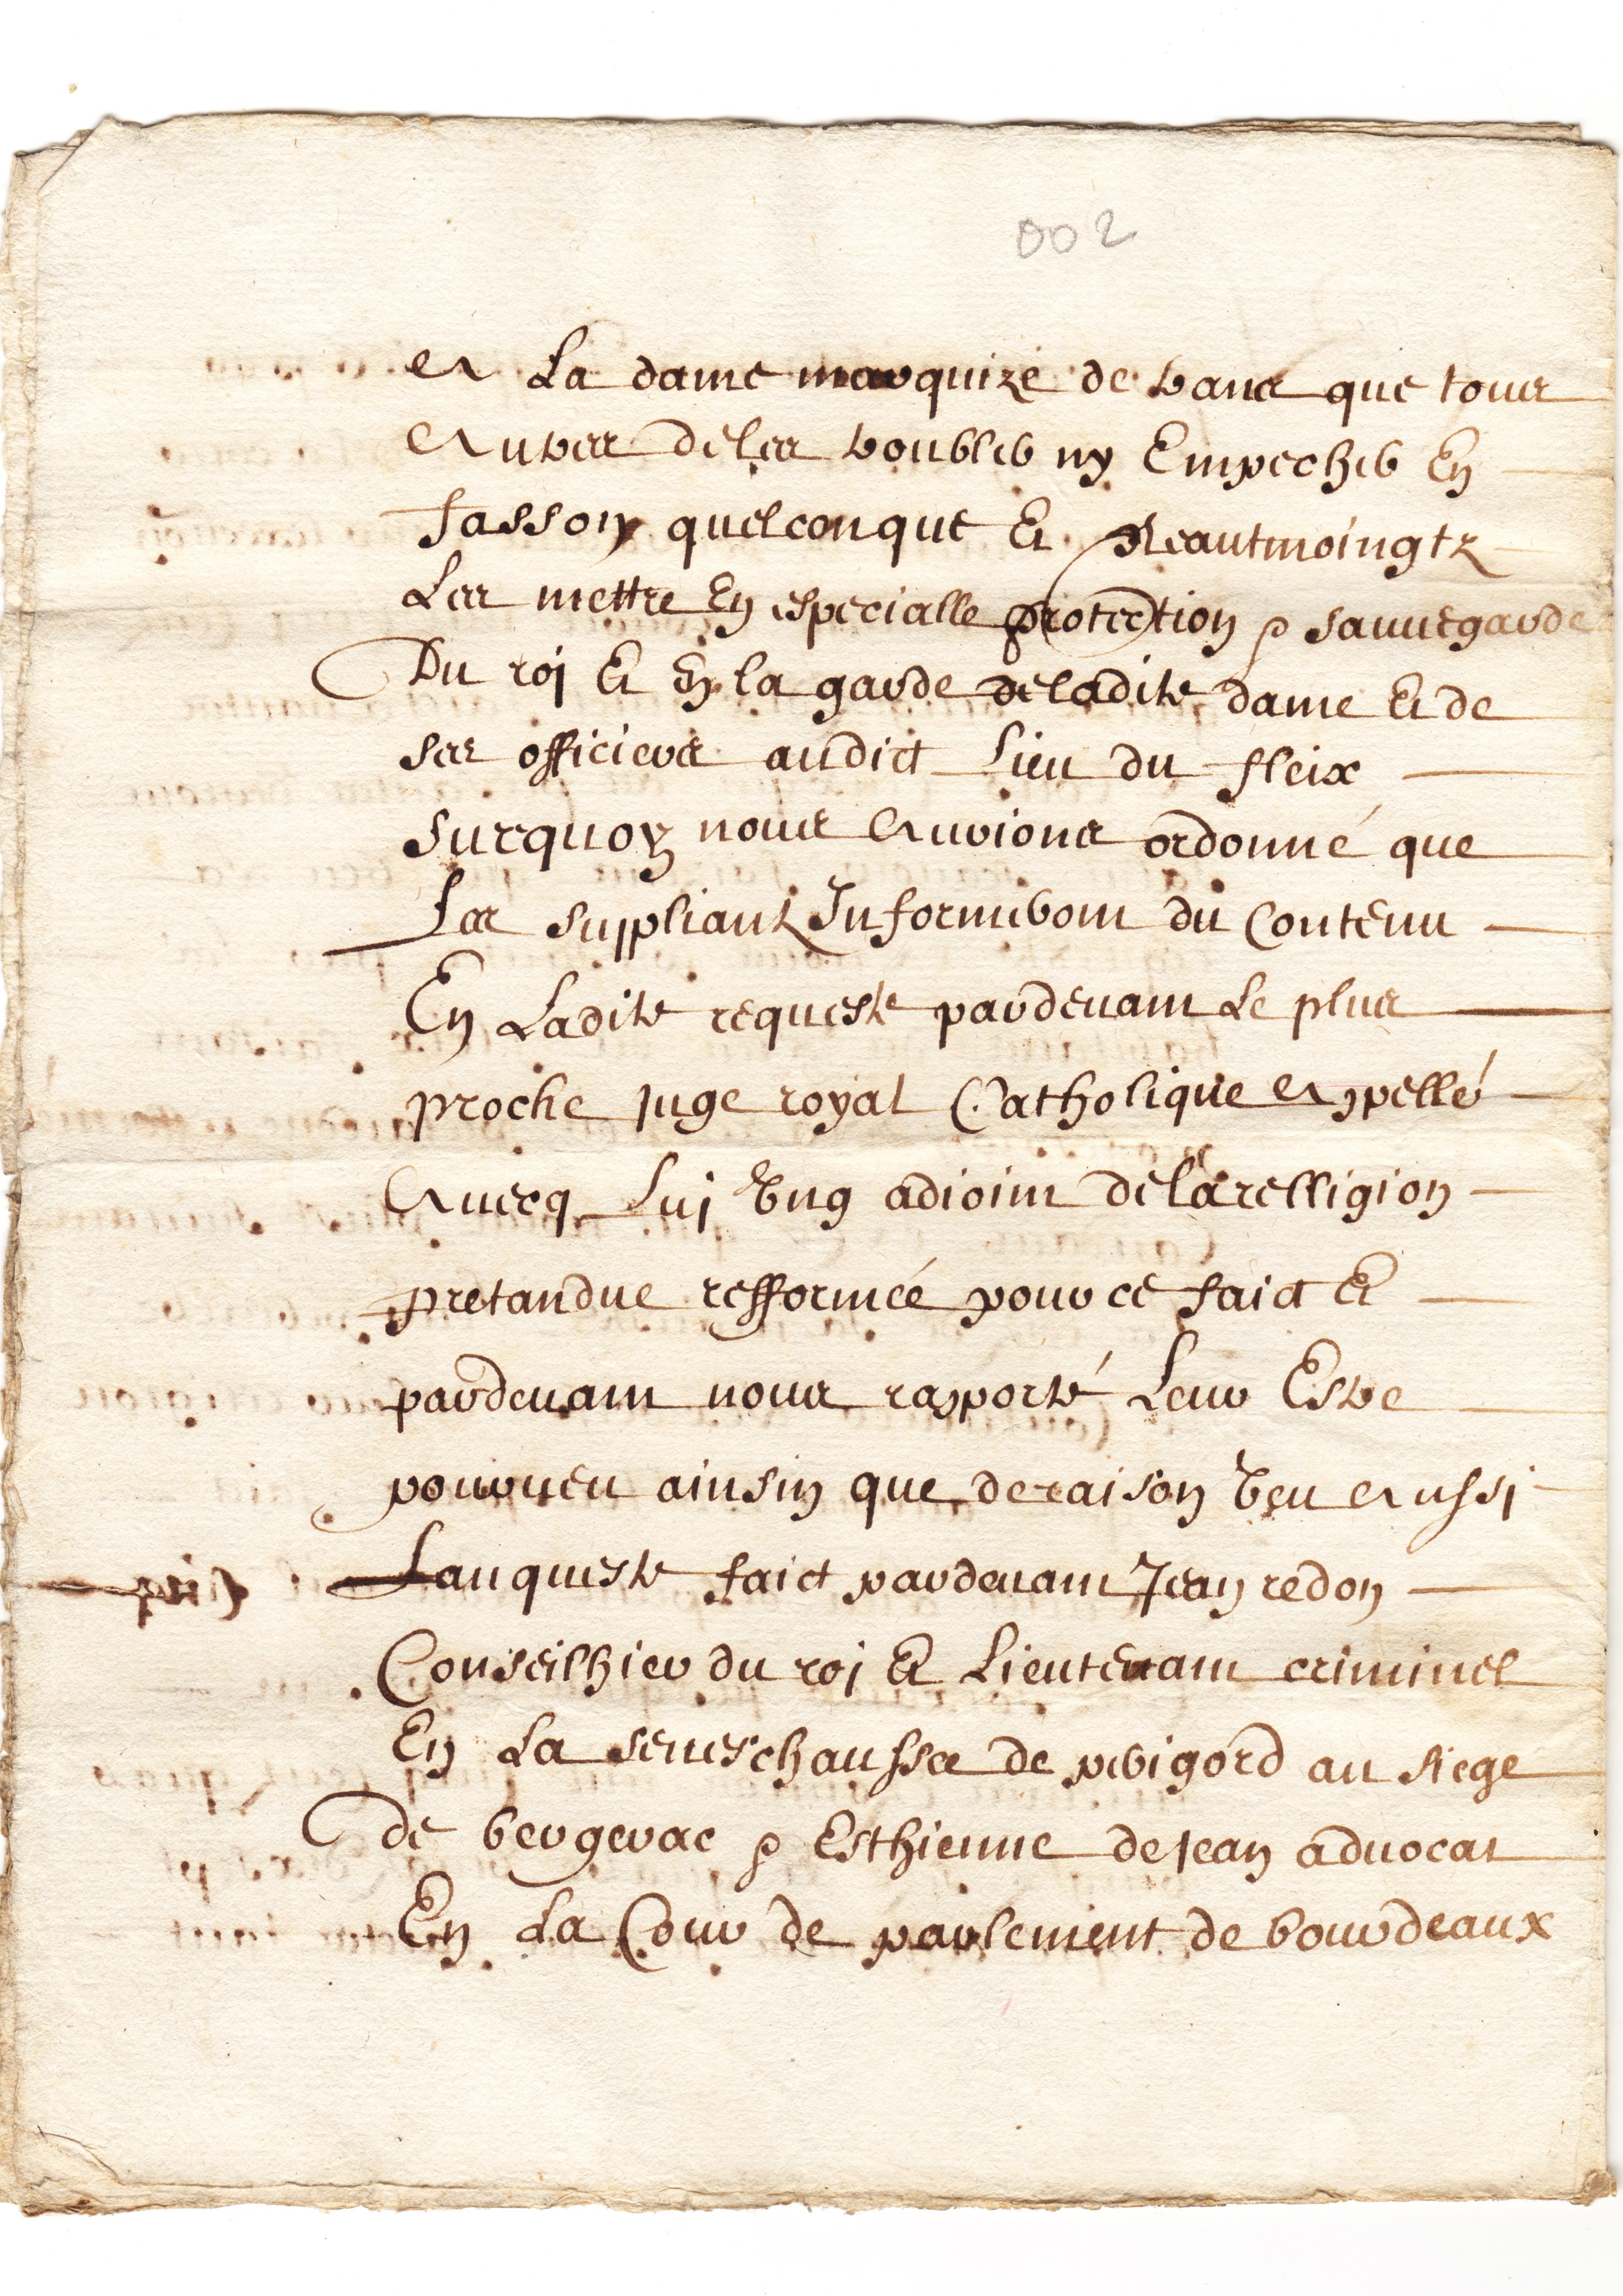 002
A La dame marquize de trans que tous
Autres de les troubler ny Empecher En
fasson quelconque Et Neautmoingtz
Les mettre En especialle protection & sauvegarde
Du roj Et En la garde de ladite dame Et de
ses officiers audict Lieu du fleix
surquoy nous Auvions ordonné que
Les suppliantz Informeront du Contenu
En Ladite requeste pardevant Le plus
proche juge royal Catholique Appellé
Avecq Luj Ung adjoint de la relligion
pretandue refformée pour ce faict Et
pardevant nous raporté Leur Estre
pourveu ainsin que de raison Veu Aussi
Lanqueste faict pardevant Jean redon
Conseilhier du roj Et Lieutenant criminel
En La seneschaussee de perigord au siege
de bergerac & Esthienne dejean advocat
En La Cour de parlement de bourdeaux